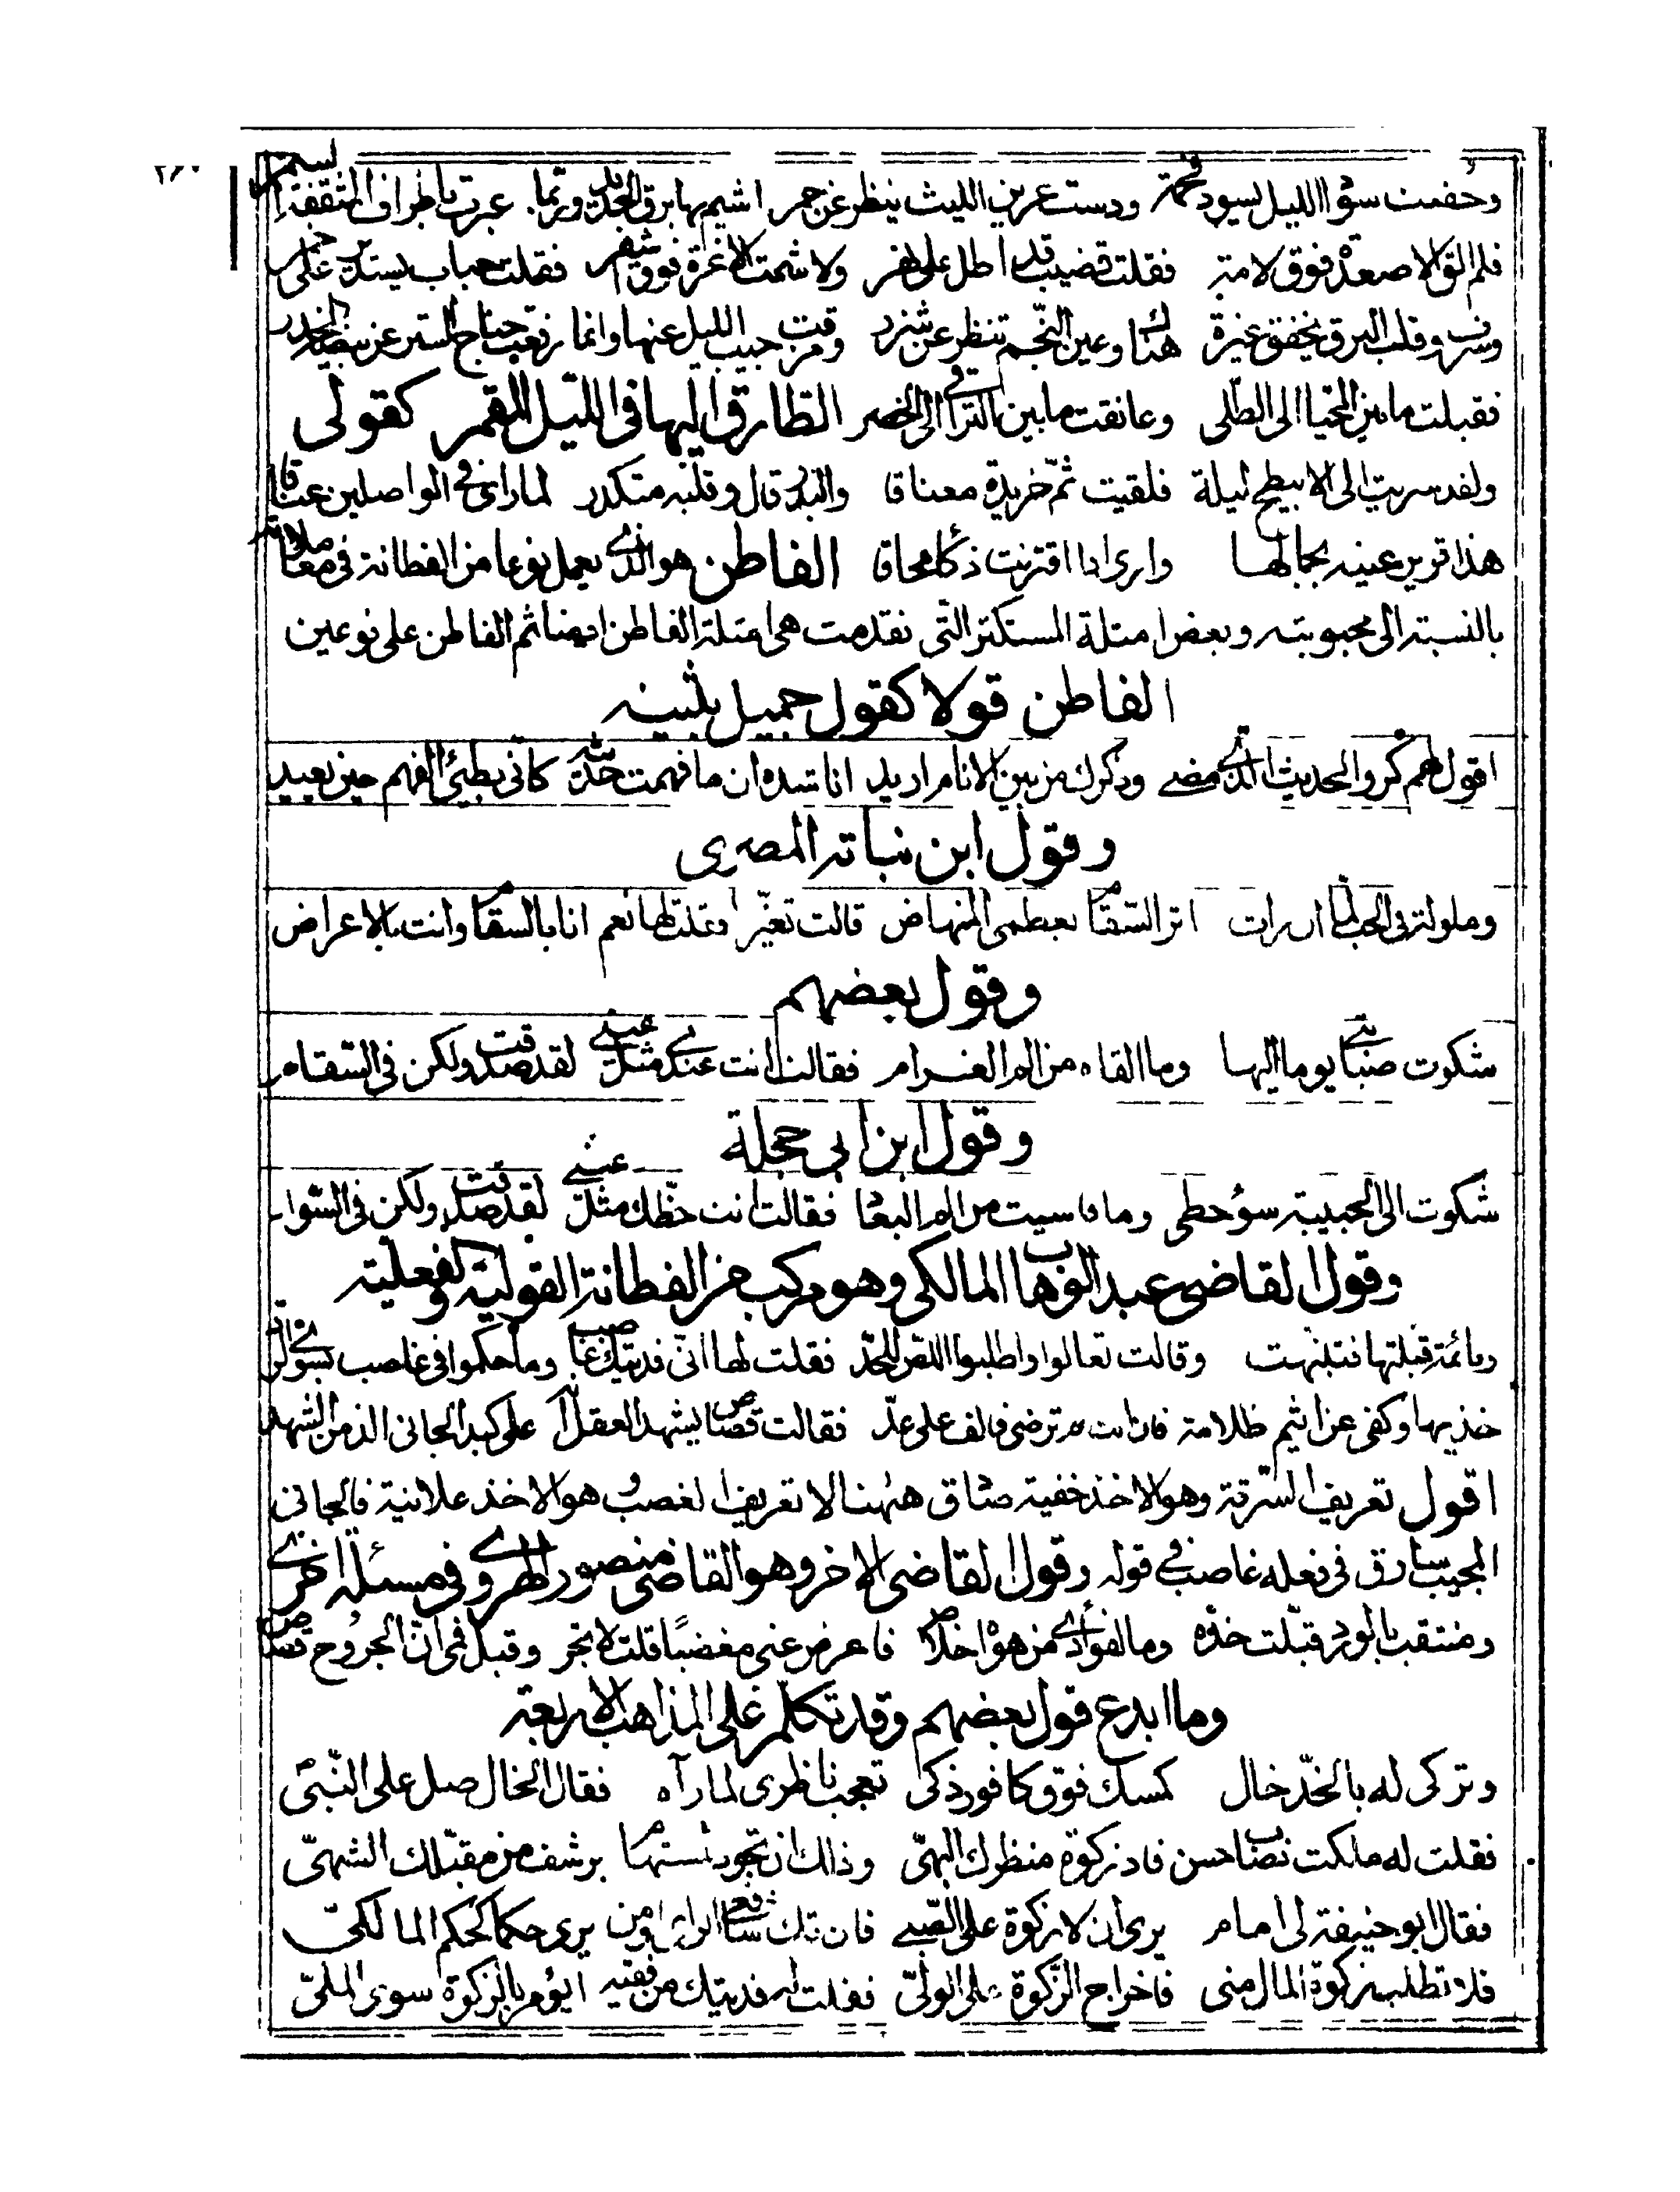 ٢٦٠
وخضت سؤاالليل يسود فحمة ودست عرين الليث ينظر عن جمر اشيم بها برق الحديد وربما عبرت باطراف المثقفة السمر
فلم الق الا صعدة فوق لامة فقلت قضيب قد اطل على نهر ولا شمت الا غرة فوق اشقر فقلت حباب يستدير على خمر
وسرت وقلب البرق يخفق غيرة هناك وعين النجم تنظر عن شزر جيب الليل عنها وانما رفعت جناح الستر عن بيضة الخدر
فقبلت ما بين المحيا الى الطلى وعانقت ما بين التراقي الى الخصر الطارق اليها فى الليل المقمر كقولى
ولقد سريت الى الابيطح ليلة فلقيت ثم خريدة معناقا والبدر قال وقلبه متكدر لما راى فى الواصلين عناقا
هذا قرين عينه بجمالها وارى اذا اقترنت ذكا محاقا الفاطن هو الذي يعمل نوعا من الفطانة فى معاملاته
بالنسبة الى محبوبته وبعض امثلة المستكتر التى تقدمت هى امثلة الفاطن ايضا ثم الفاطن على نوعين
الفاطن قولا كقول جميل بثينه
اقول لهم كروا الحديث الذي مضى وذكرك من بين الانام اريد اناشده ان ما فهمت حديثه كانى بطيئ الفهم حين يعيد
وقول ابن نباته المصرى
وملولة فى الحب لما ان رات اثر السقام بعظمى المنهاض قالت تغير ا فقلت لها نعم انا بالسقام وانت بالاعراض
وقول بعضهم
شكوت صبابتي يوما اليها وما القاه من الم الغرام فقالت انت عندي مثل عيني لقد صدقت ولكن فى السقام
وقول ابن ابى حجلة
شكوت الى الحبيبة سؤ حظى وما قاسيت من الم البعاد فقالت انت حظك مثل عيني لقد صدقت ولكن فى السواد
وقول القاضى عبد الوهاب المالكى وهو مركب من الفطانة القولية والفعلية
ونائمة قبلتها فتنبهت وقالت تعالوا واطلبوا اللص للحد فقلت لها انى فديتك غاصب وما حكموا فى غاصب بسوى الرد
خذيها وكفى عن اثيم ظلامة فان انت لم ترضى فالف على عد فقالت قصاص يشهد العقل انه على كبد الجانى الذ من الشهد
اقول تعريف السرقة وهو الاخذ خفية صادق ههنا لا تعريف الغصب وهو الاخذ علانية فالجانى
المجيب سارق فى فعله غاصب فى قوله وقول القاضى الاخر وهو القاضى منصور الهروي فى مسئلة اخرى
ومنتقب بالورد قبلت خده وما لفوادي من هواه خلاص فاعرض عنى مغضبا قلت لا تجر وقبل فمى ان الجروح قصاص
وما ابدع قول بعضهم وقد تكلم على المذاهب الاربعة
وتركى له بالخد خال كمسك فوق كافور ذكى تعجب ناظرى لما رآه فقال الخال صل على النبى
فقلت له ملكت نصاب حسن فاد زكوة منظرك البهى وذلك ان تجود لمستهام برشف من مقبلك الشهى
فقال ابو حنيفة لى امام يرى ان لا زكوة على الصبى فان تك شافعى الراى او من يرى حكما كحكم المالكى
فلا تطلب زكوة المال منى فاخراج الزكوة على الولى فقلت له فديتك من فقيه ايؤمر بالزكوة سوى الملى